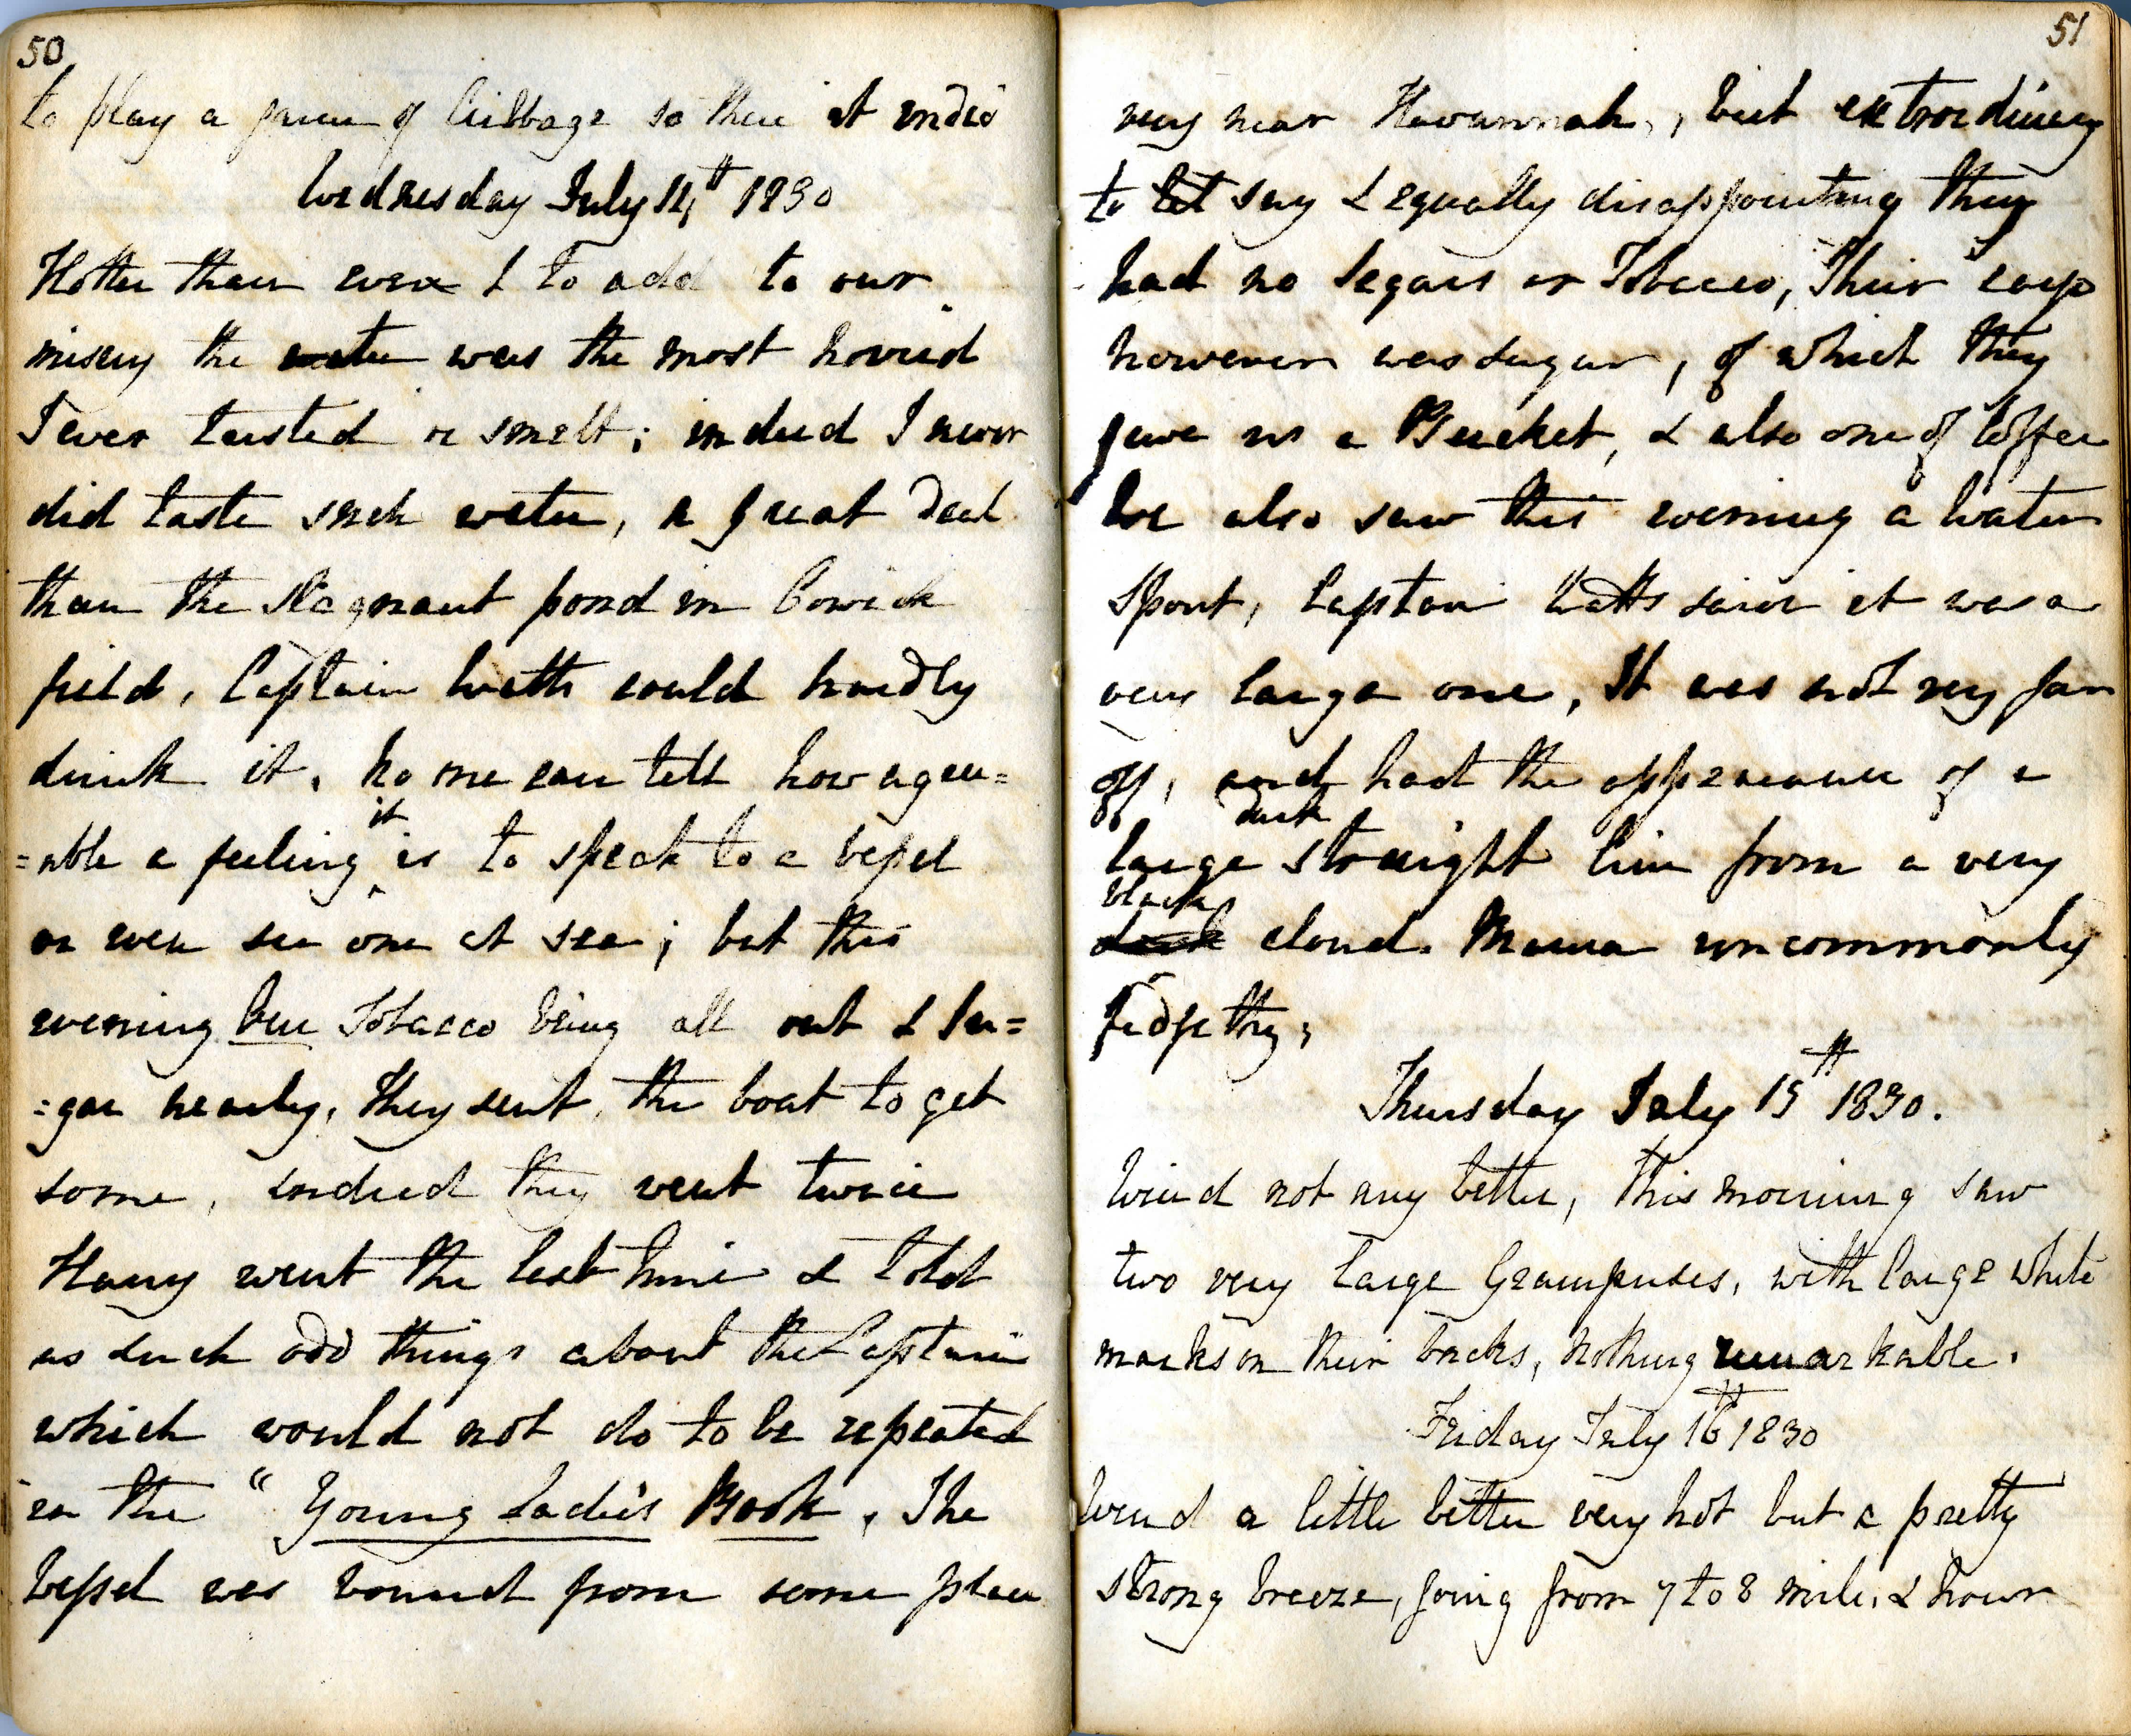 50
to play a game of Cribbage so there it ended
Wednesday July 14th 1830
Hotter than ever & to add to our
misery the water was the most horrid
I ever tasted or smelt; indeed I never
did taste such water, a great deal
than the stagnant pond in Cowick
field, Captain Watts could hardly
drink it. No one can tell how agree=
=able a feeling it is to speak to a vessel
or even see one at sea; but this
evening our Tobacco being all out & Su=
=gar nearly, they sent the boat to get
some, indeed they went twice
Harry went the last time & told
us such odd things about the Captain
which would not do to be repeated
in the "Young Ladies Book. The
Vessel was bound from some place
51
very near Havannah, but extrordinery
to let say & equally disappointing they
had no Segars or Tobacco, Their cargo
however was sugar, of which they
gave us a Bucket, & also one of Coffee
We also saw this evening a Water
Spout, Captain Watts said it was a
very large one, It was not very far
off, and had the appearance of a
large dark straight line from a very
black dark cloud. Mama uncommonly
fidgetty;
Thursday July 15th 1830.
Wind not any better, this morning saw
two very large Grampuses, with large white
marks on their backs, nothing remarkable.
Friday July 16th 1830
Wind a little better very hot but a pretty
strong breeze, going from 7 to 8 miles & hour